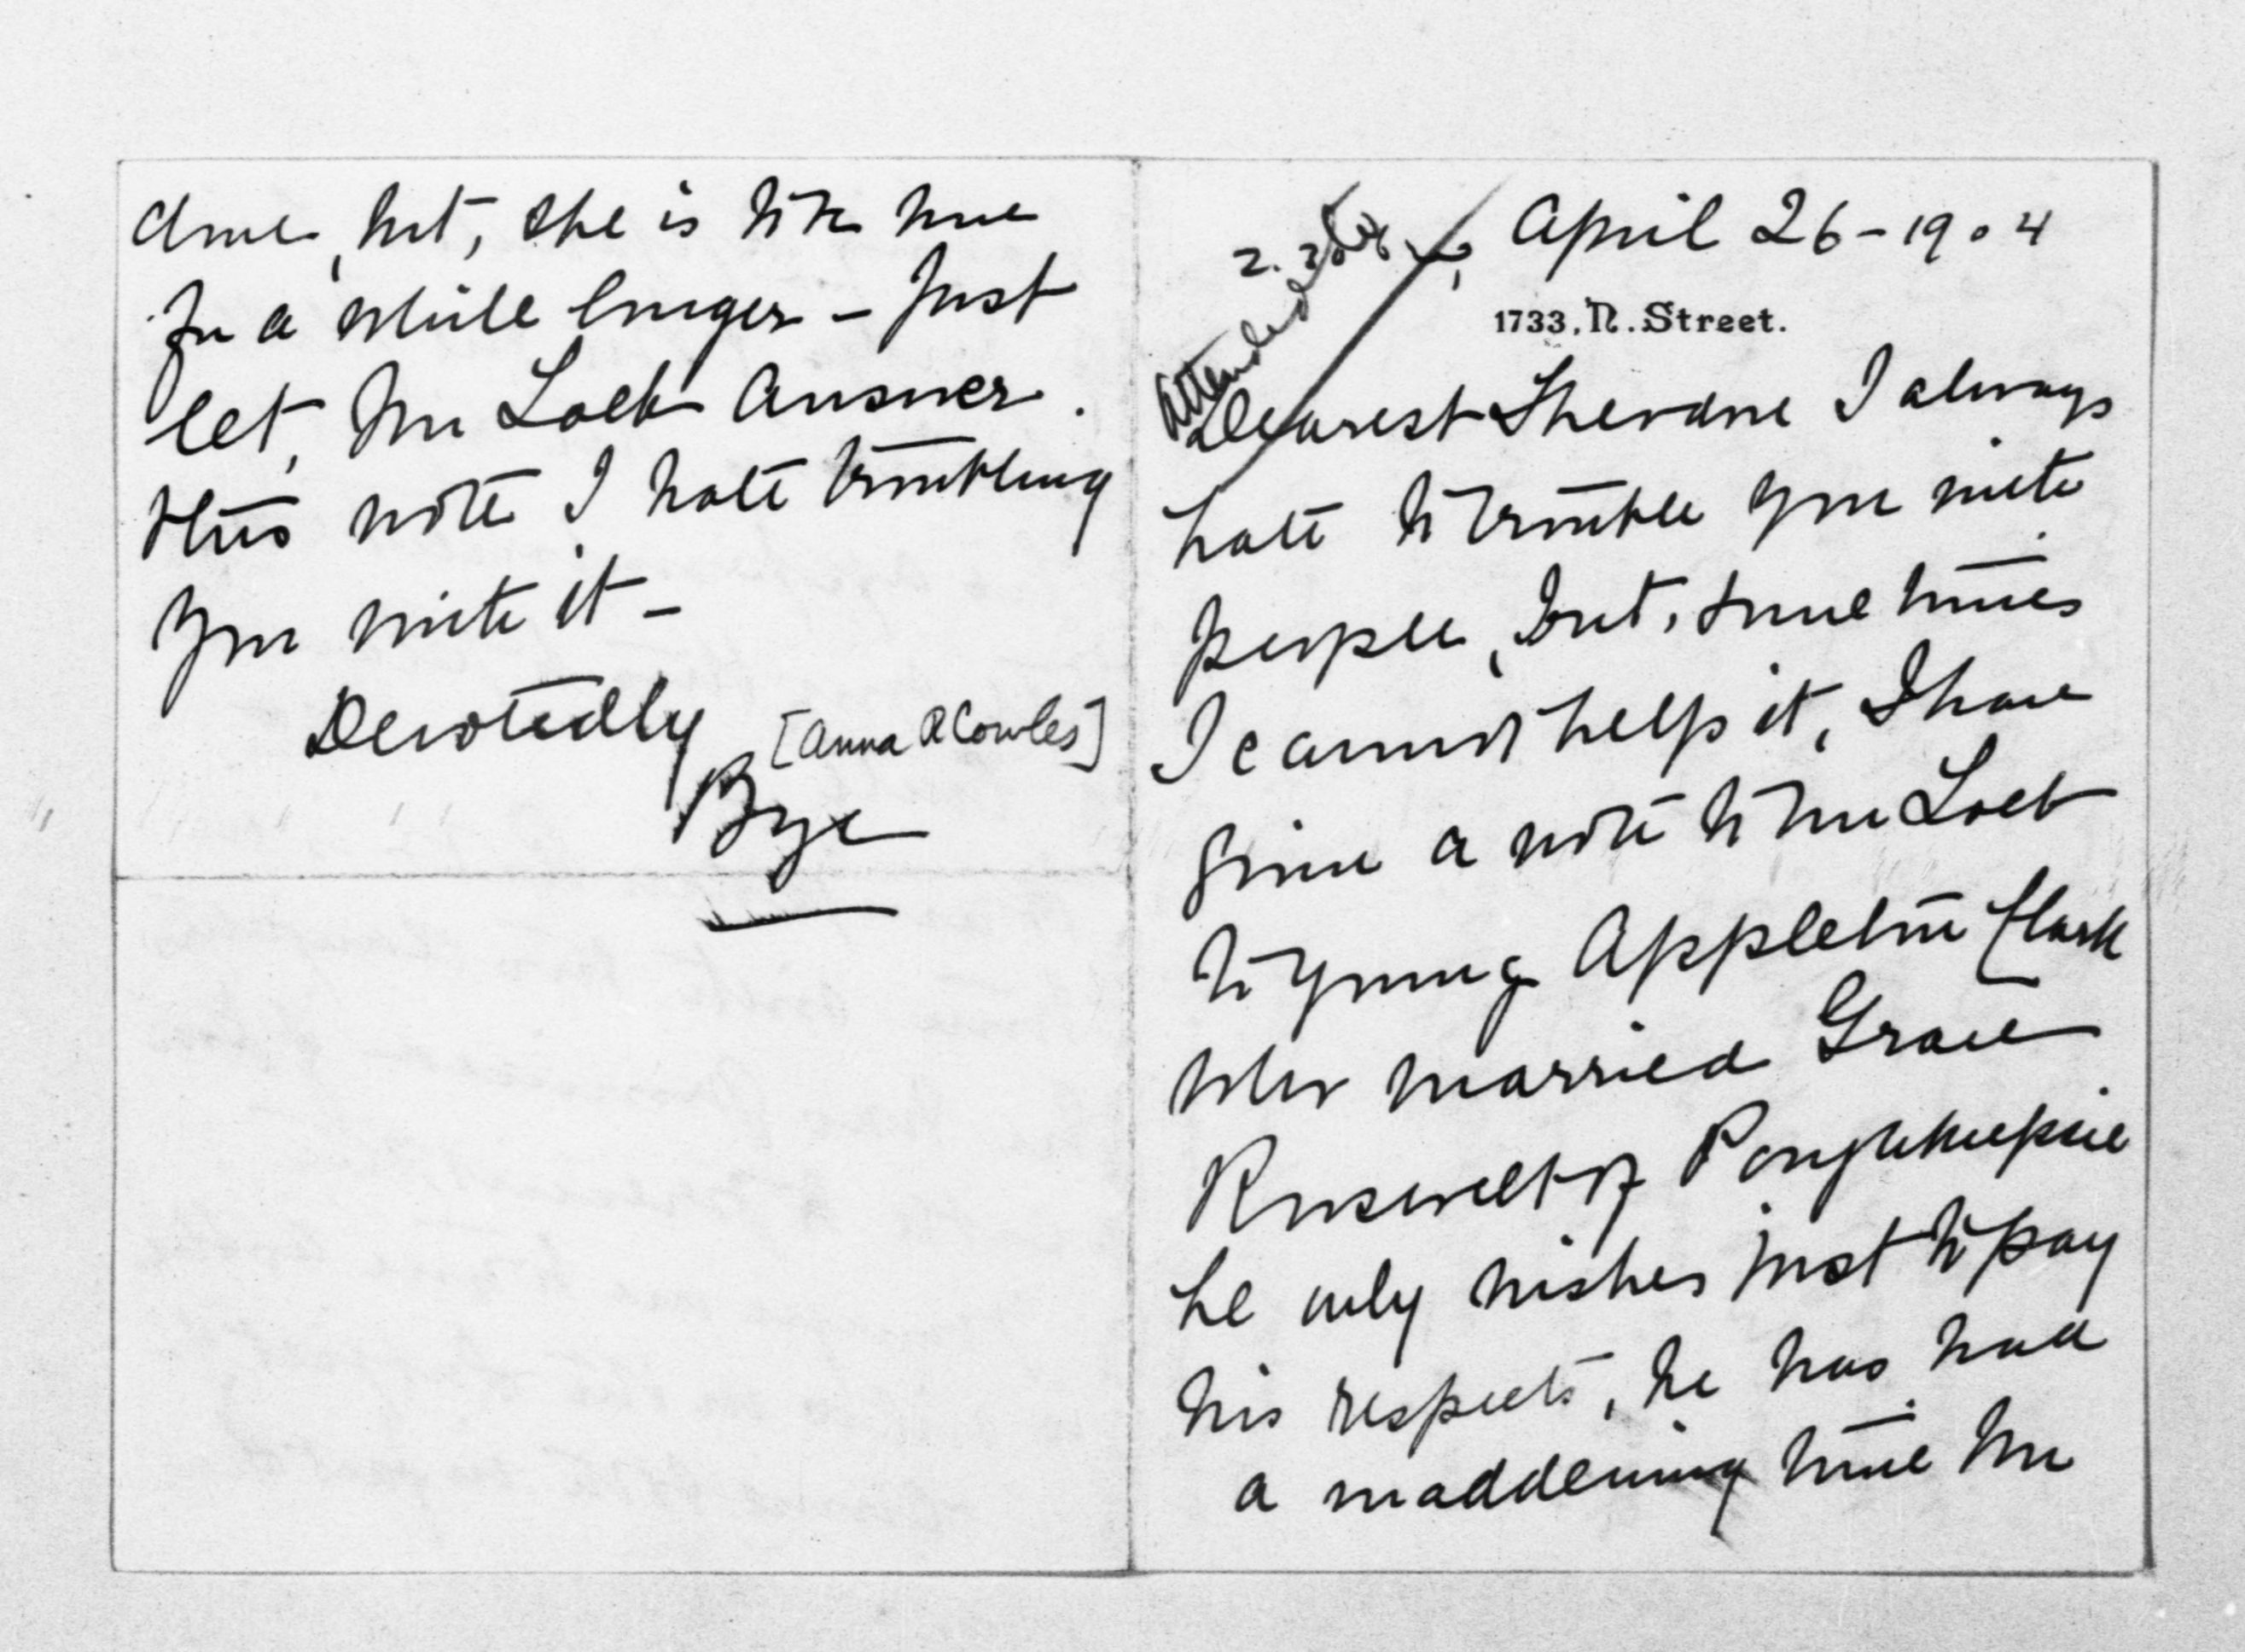 April 26-1904
1733, N. Street.
Attended
Dearest Theodore I always
hate to trouble you with
people, but, sometimes
I cannot help it, I have
given a note to Mr Loeb
to young Appleton Clark
who married Grace
Roosevelt of Poughkeepsie
he only wishes just to pay
his respects, he has had
a maddening time Mr
but, she is to be
for a while longer - Just
let, Mr Loeb answer
this note I hate troubling
you with it -
Devotedly
[Anna R Cowles]
Bye